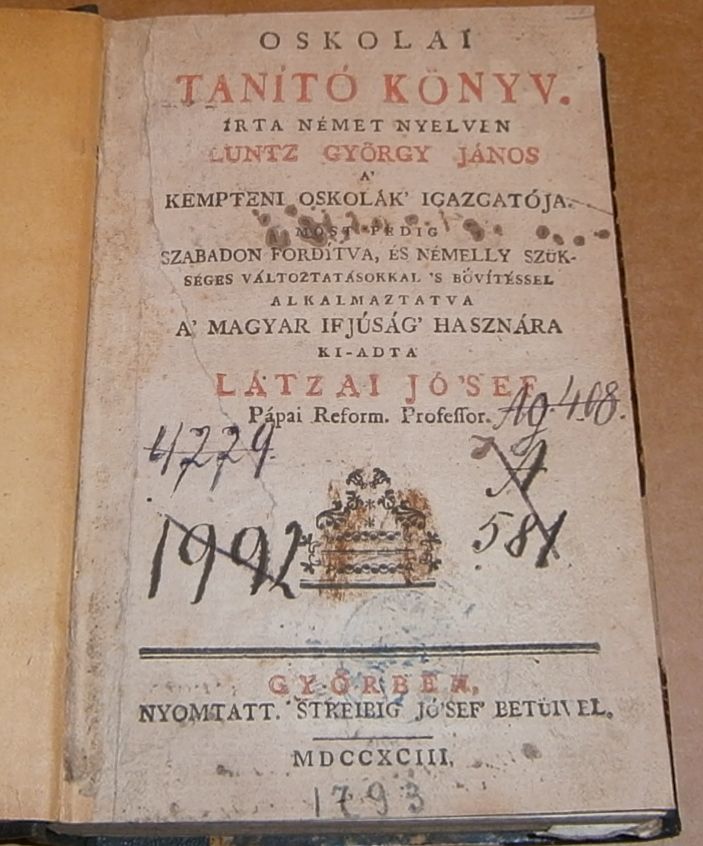 OSKOLAI
TANÍTÓ KÖNYV.
ÍRTA NÉMET NYELVEN
LUNTZ GYÖRGY JÁNOS
A'
KEMPTENI OSKOLÁK' IGAZGATÓJA.
MOST PEDIG
SZABADON FORDÍTVA, ÉS NÉMELLY SZÜK-
SÉGES VÁLTOZTATÁSOKKAL 'S BŐVÍTÉSSEL
ALKALMAZTATVA
A' MAGYAR IFJÚSÁG' HASZNÁRA
KI-ADTA
LÁTZAI JÓ'SEF
Pápai Reform. Profeſſor.
Ag. 408.
4779.
A
1992
581
GYŐRBEN,
NYOMTATT. STREIBIG JÓ'SEF' BETŰIVEL.
MDCCXCIII.
1793